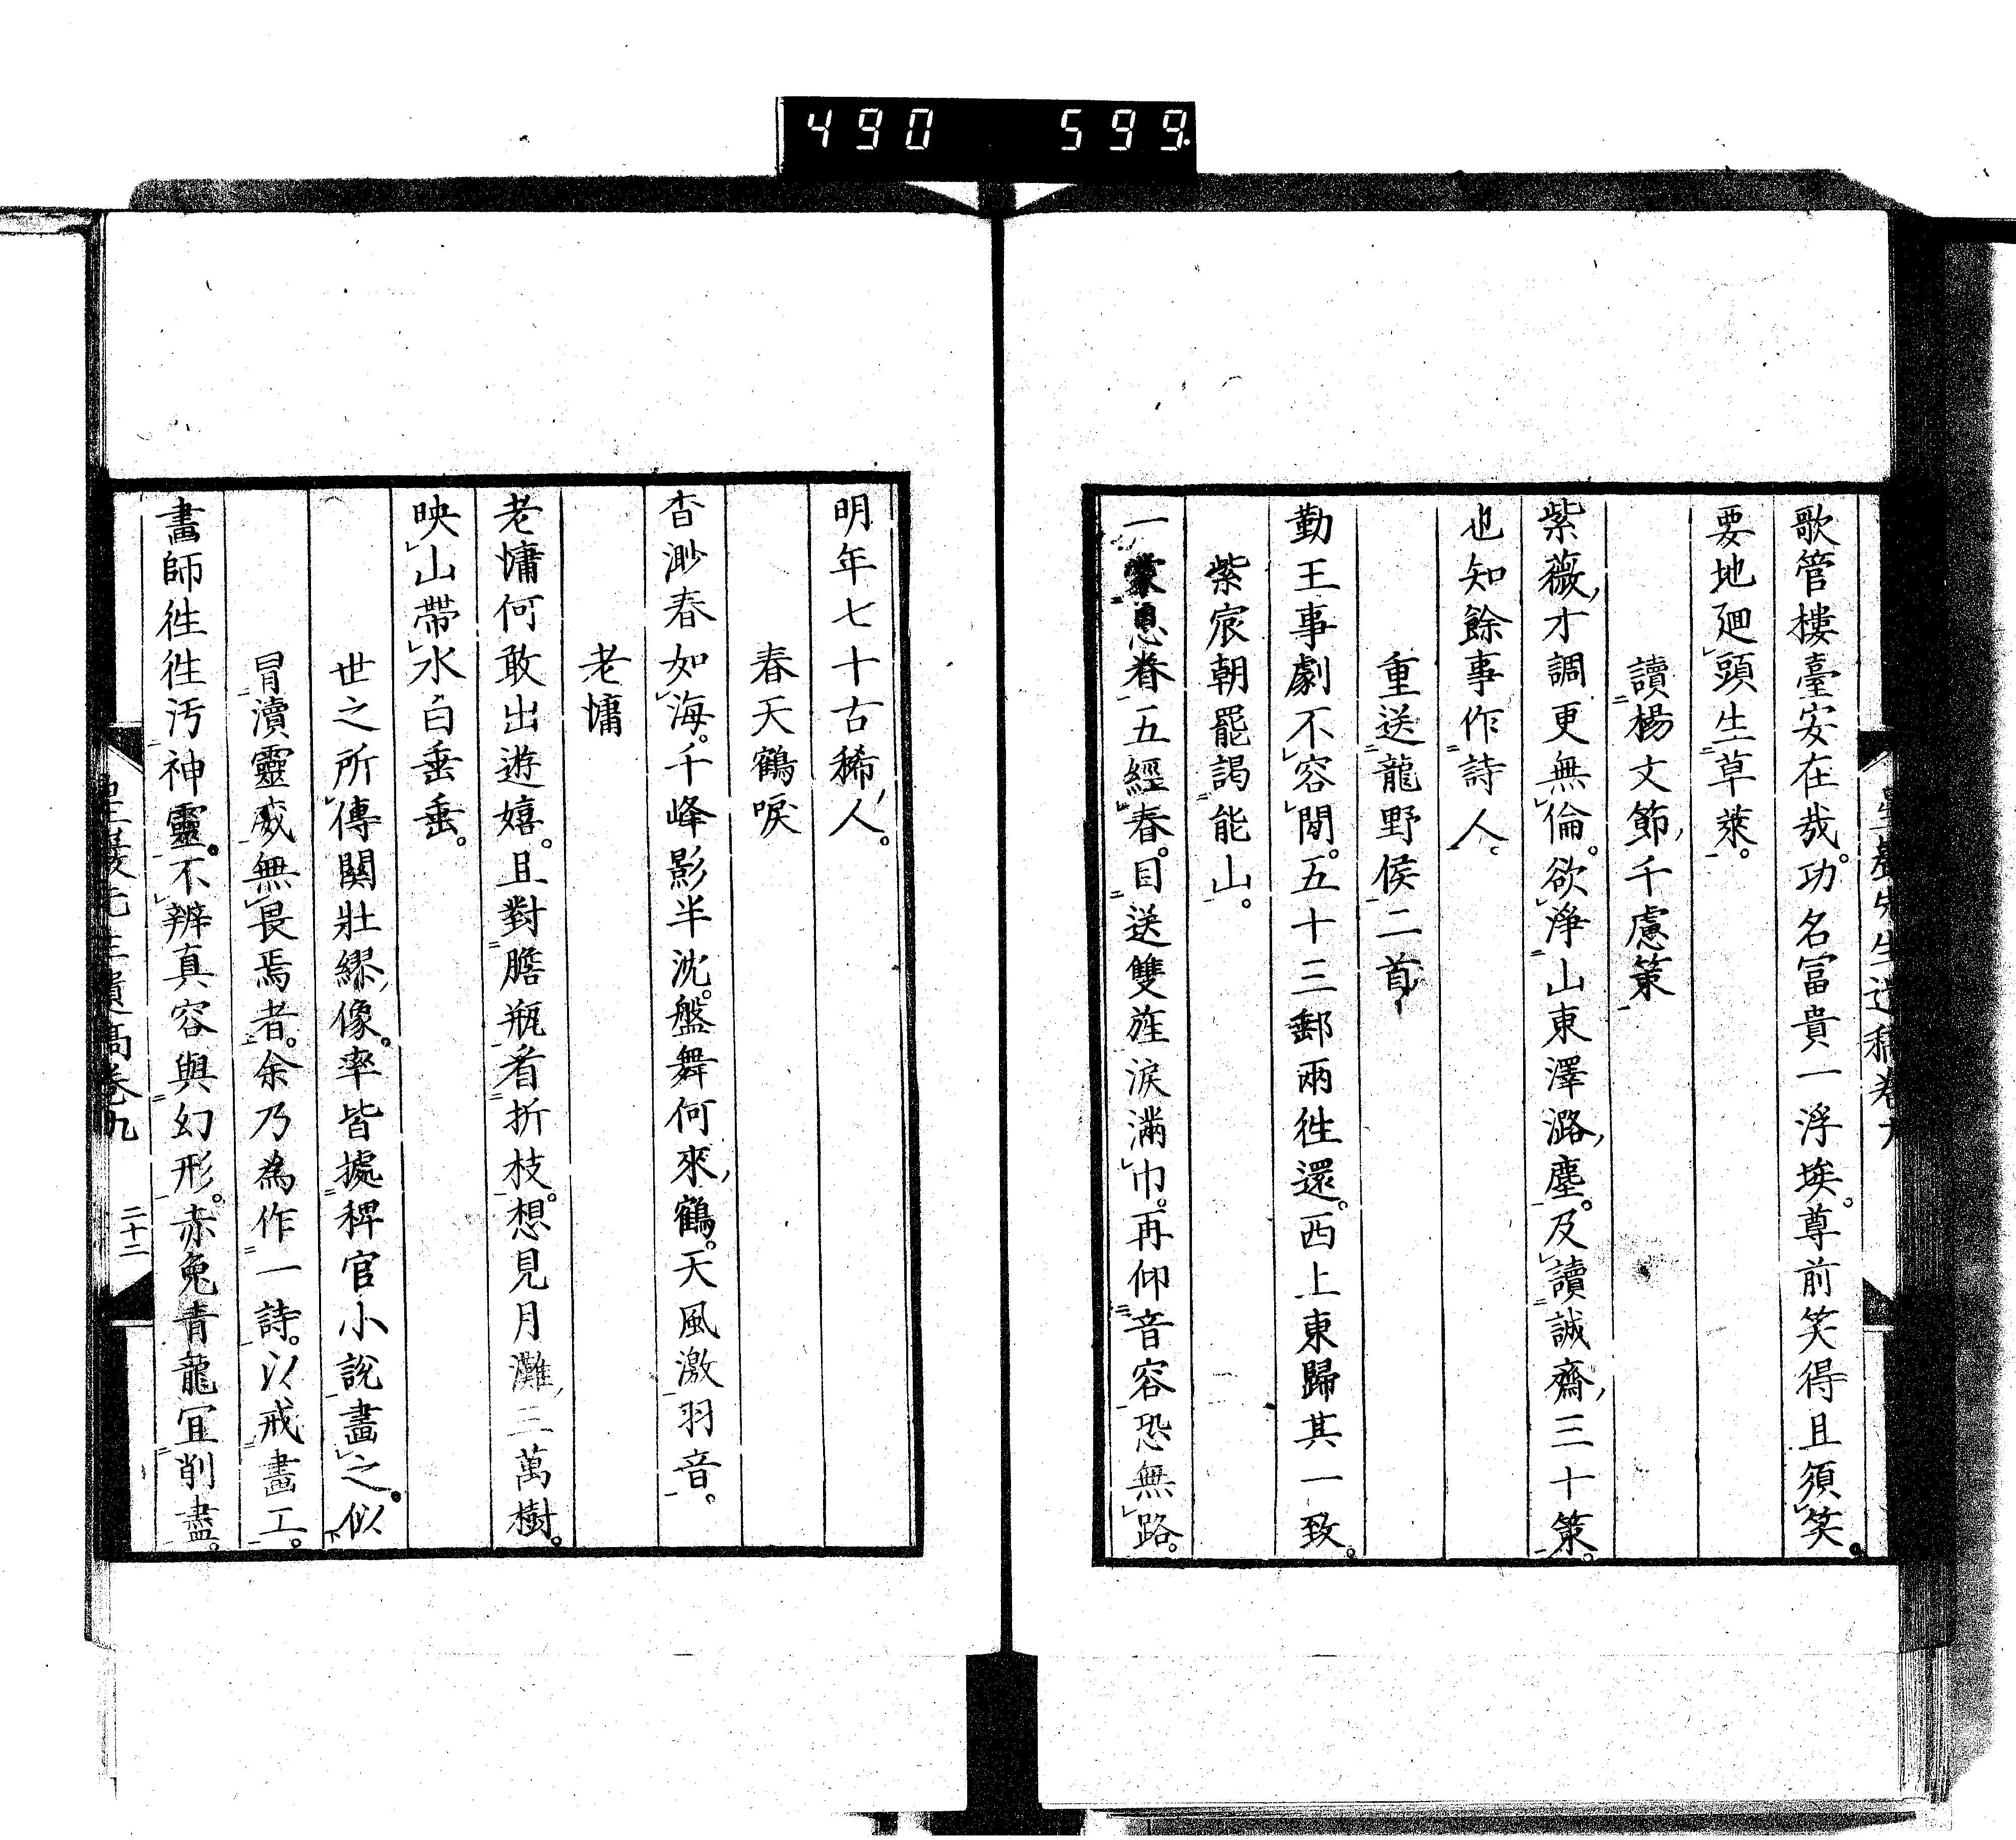 490 599
歌管樓臺安在哉。功名冨貴一浮埃。尊前笑得且須笑。
要地廻頭生草萊。
讀楊文節千慮策
紫薇才調更無倫。欲淨山東澤潞塵。及讀誠齋三十策。
也知餘事作詩人。
重送龍野侯二首
勤王事劇不容閒。五十三郵兩徃還。西上東歸其一致。
紫宸朝罷謁能山。
一蒙恩眷五經春。目送雙旌淚滿巾。再仰音容恐無路。
明年七十古稀人。
春天鶴唳
杳渺春如海。千峰影半沈。盤舞何來鶴。天風激羽音。
老慵
老慵何敢出遊嬉。且對膽瓶看折枝。想見月灘三萬樹。
映山帶水白垂垂。
世之所傳關壯繆像。率皆據稗官小說畫之。似
冒瀆靈威無畏焉者。余乃為作一詩。以戒畫工。
畵師徃徃汚神靈。不辨真容與幻形。赤兔青龍宜削盡。
二十二